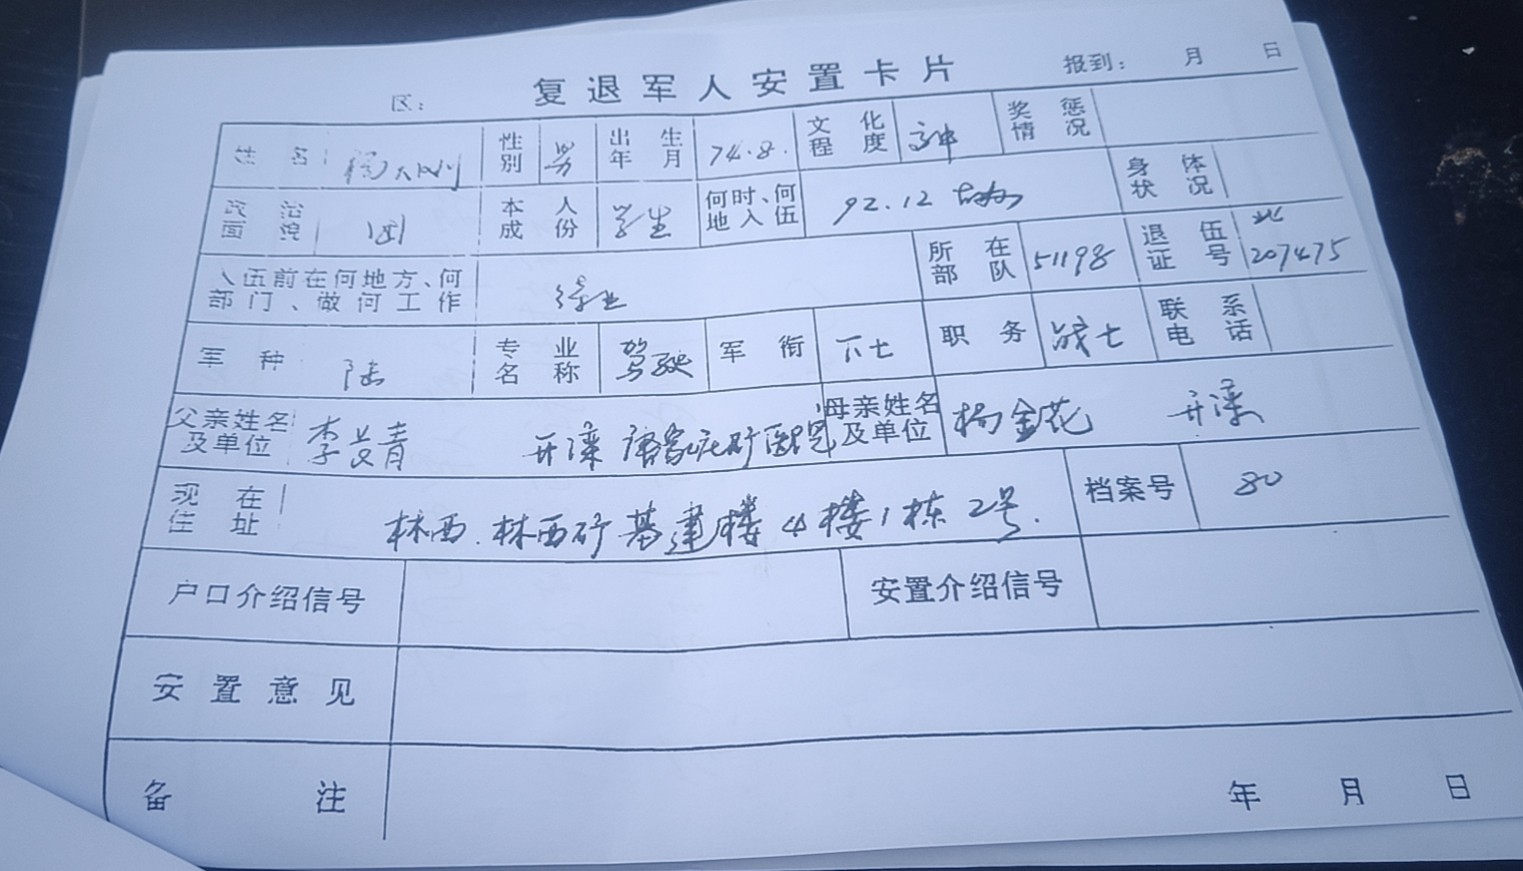 复退军人安置卡片
区： 报到： 月 日
姓名 杨大刚 性别 男 出生年月 74.8. 文化程度 高中 奖惩情况
政治面貌 团 本人成份 学生 何时、何地入伍 92.12 身体状况
入伍前在何地方、何部门、做何工作 待业 所在部队 51198 退伍证号 北207475
军种 陆 专业名称 驾驶 军衔 下士 职务 战士 联系电话
父亲姓名及单位 李益青 开滦唐家庄矿医院 母亲姓名及单位 杨金花 开滦
现在住址 林西.林西矿基建楼4楼1栋2号. 档案号 80
户口介绍信号 安置介绍信号
安置意见
备注 年 月 日